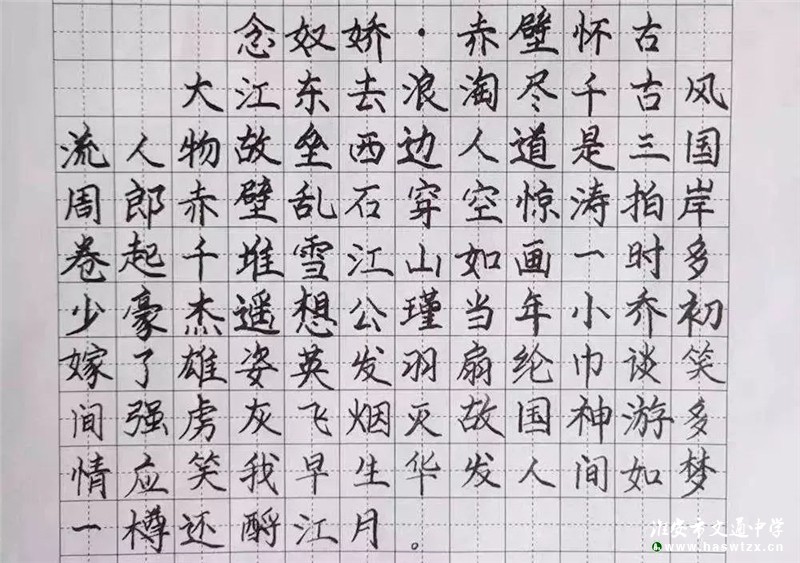 念奴娇·赤壁怀古
大江东去浪淘尽千古风
流人物故垒西边人道是三国
周郎赤壁乱石穿空惊涛拍岸
卷起千堆雪江山如画一时多
少豪杰遥想公瑾当年小乔初
嫁了雄姿英发羽扇纶巾谈笑
间强虏灰飞烟灭故国神游多
情应笑我早生华发人间如梦
一樽还酹江月。
淮安市文通中学
www.haswtzx.cn